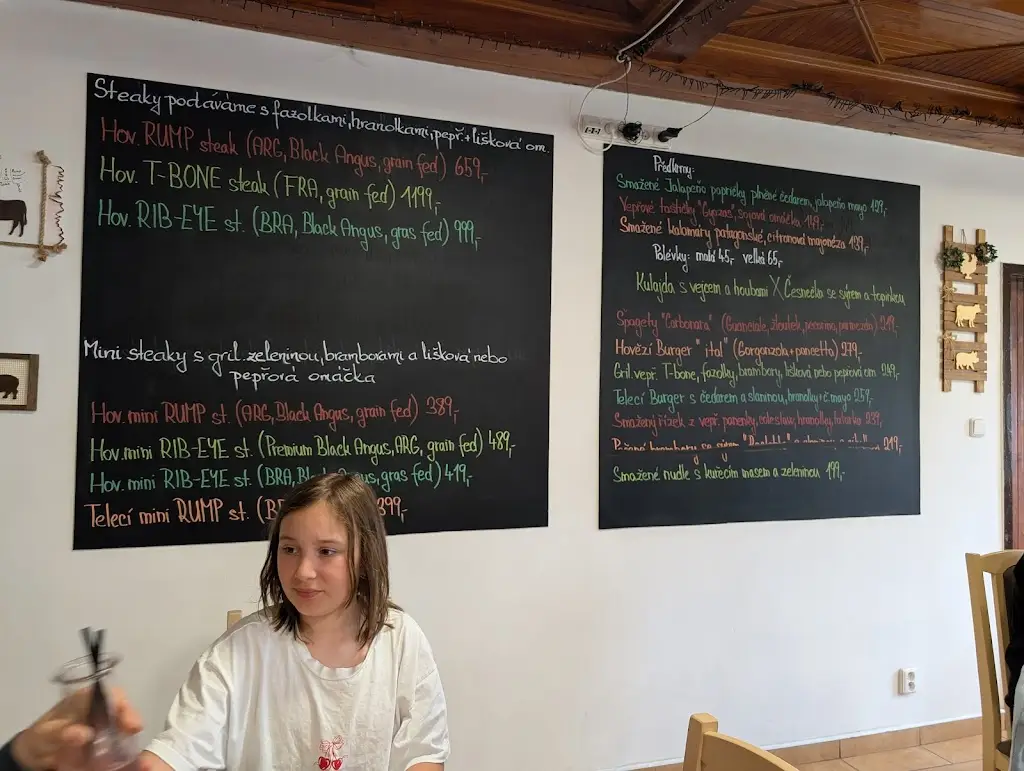 Steaky podáváme s fazolkami, hranolkami, pepř. + lišková om.
Hov. RUMP steak (ARG, Black Angus, grain fed) 659,-
Hov. T-BONE steak (FRA, grain fed) 1199,-
Hov. RIB-EYE st. (BRA, Black Angus, gras fed) 999,-
Mini steaky s gril. zeleninou, bramborami a lišková nebo
pepřová omáčka
Hov. mini RUMP st. (ARG, Black Angus, grain fed) 389,-
Hov. mini RIB-EYE st. (Premium Black Angus, ARG, grain fed) 489,-
Hov. mini RIB-EYE st. (BRA, gras fed) 419,-
Telecí mini RUMP st. 399,-
Předkrmy:
Smažené Jalapeňo papričky plněné čedarem, jalapeňo mayo 129,-
Vepřové taštičky "Gyozas", sojová omáčka 149,-
Smažené kalamáry patagonské, citronová majonéza 139,-
Polévky: malá 45,- velká 65,-
Kulajda s vejcem a houbami X Česnečka se sýrem a topinkou
Špagety "Carbonara" (Guanciale, žloutek, pecorino, parmezán) 249,-
Hovězí Burger "ital" (Gorgonzola + pancetta) 279,-
Gril. vepř. T-bone, fazolky, brambory, lišková nebo pepřová om. 249,-
Telecí Burger s čedarem a slaninou, hranolky + č. mayo 259,-
Smažený řízek z vepř. panenky, coleslaw, hranolky, tatarka 239,-
219,-
Smažené nudle s kuřecím masem a zeleninou 199,-